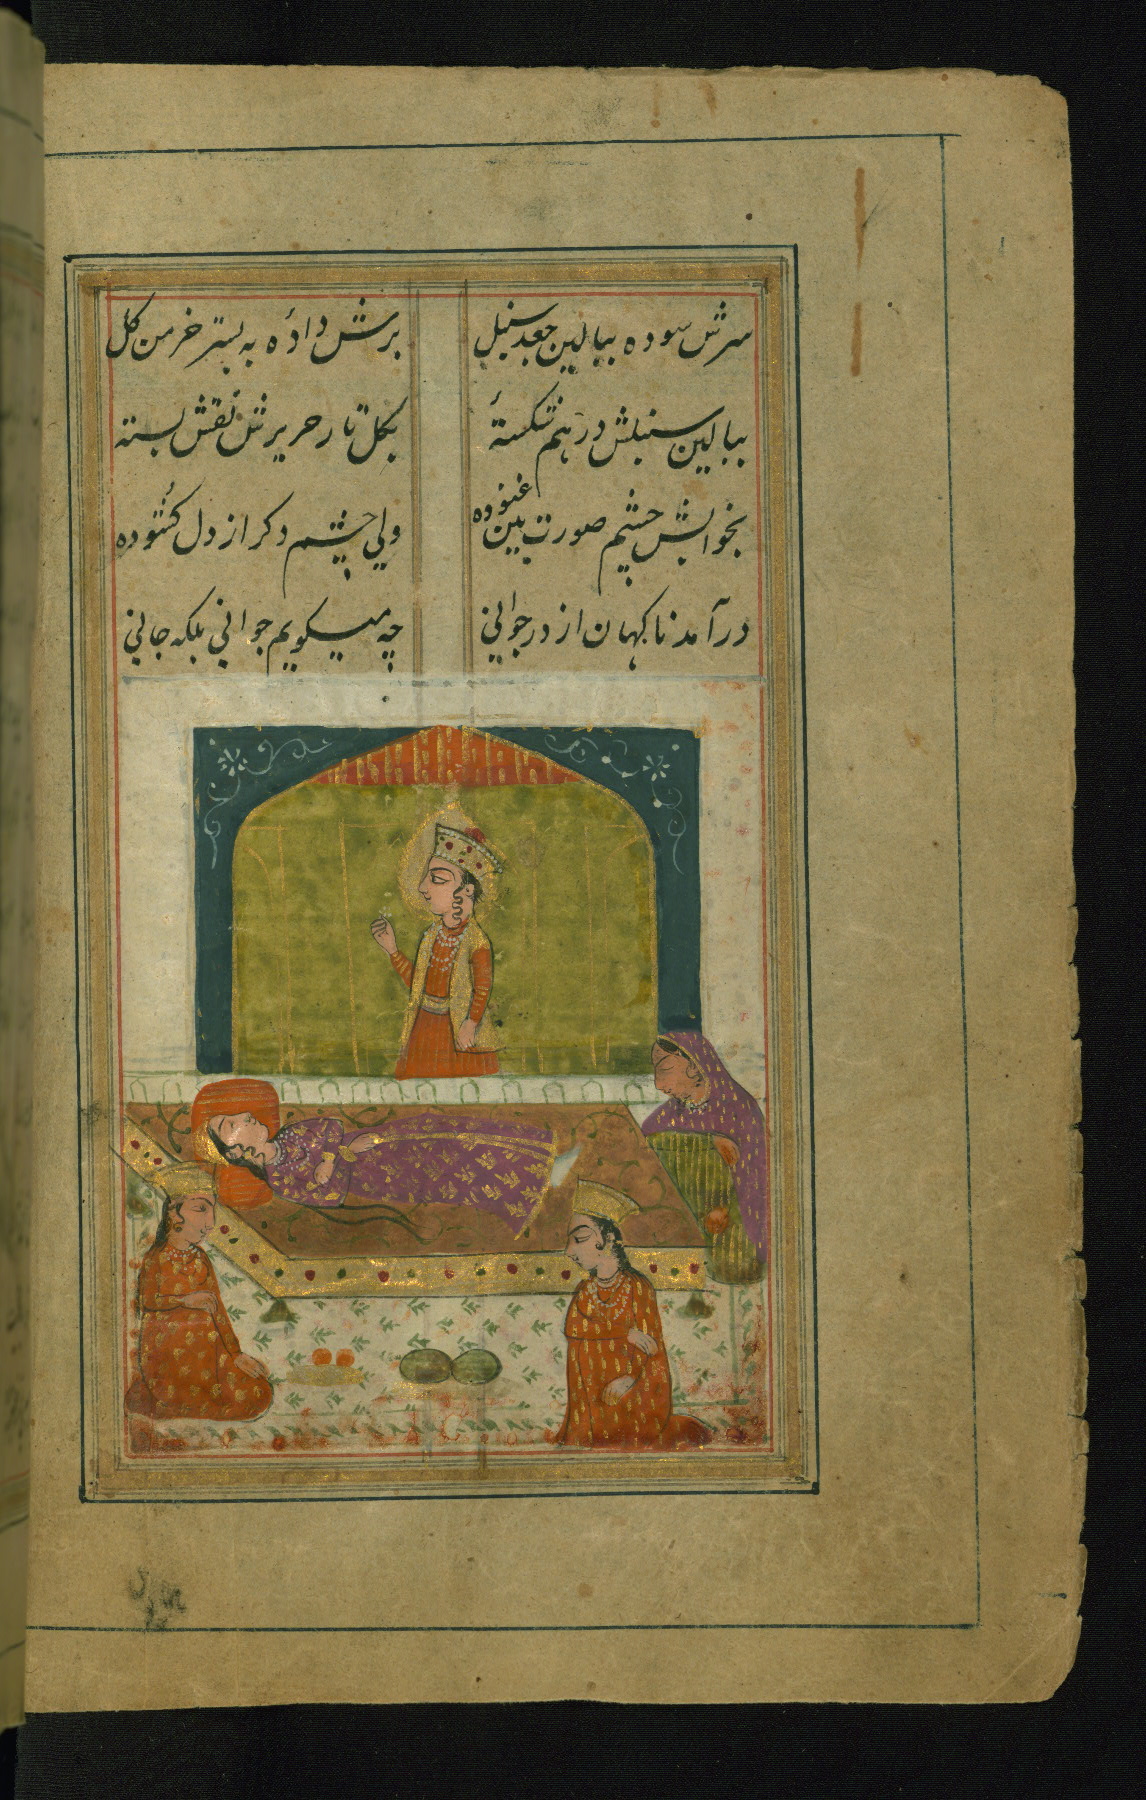 سرش سوده ببالین جعد سنبل برش داده به بستر خرمن کل
ببالین سنبلش درهم شکستهٔ بکل تار حریرش نقش بسته
بخوابش چشم صورت بین غنوده ولی چشم دکر از دل کشوده
درآمد ناکهان از در جوانی چه میکویم جوانی بلکه جانی